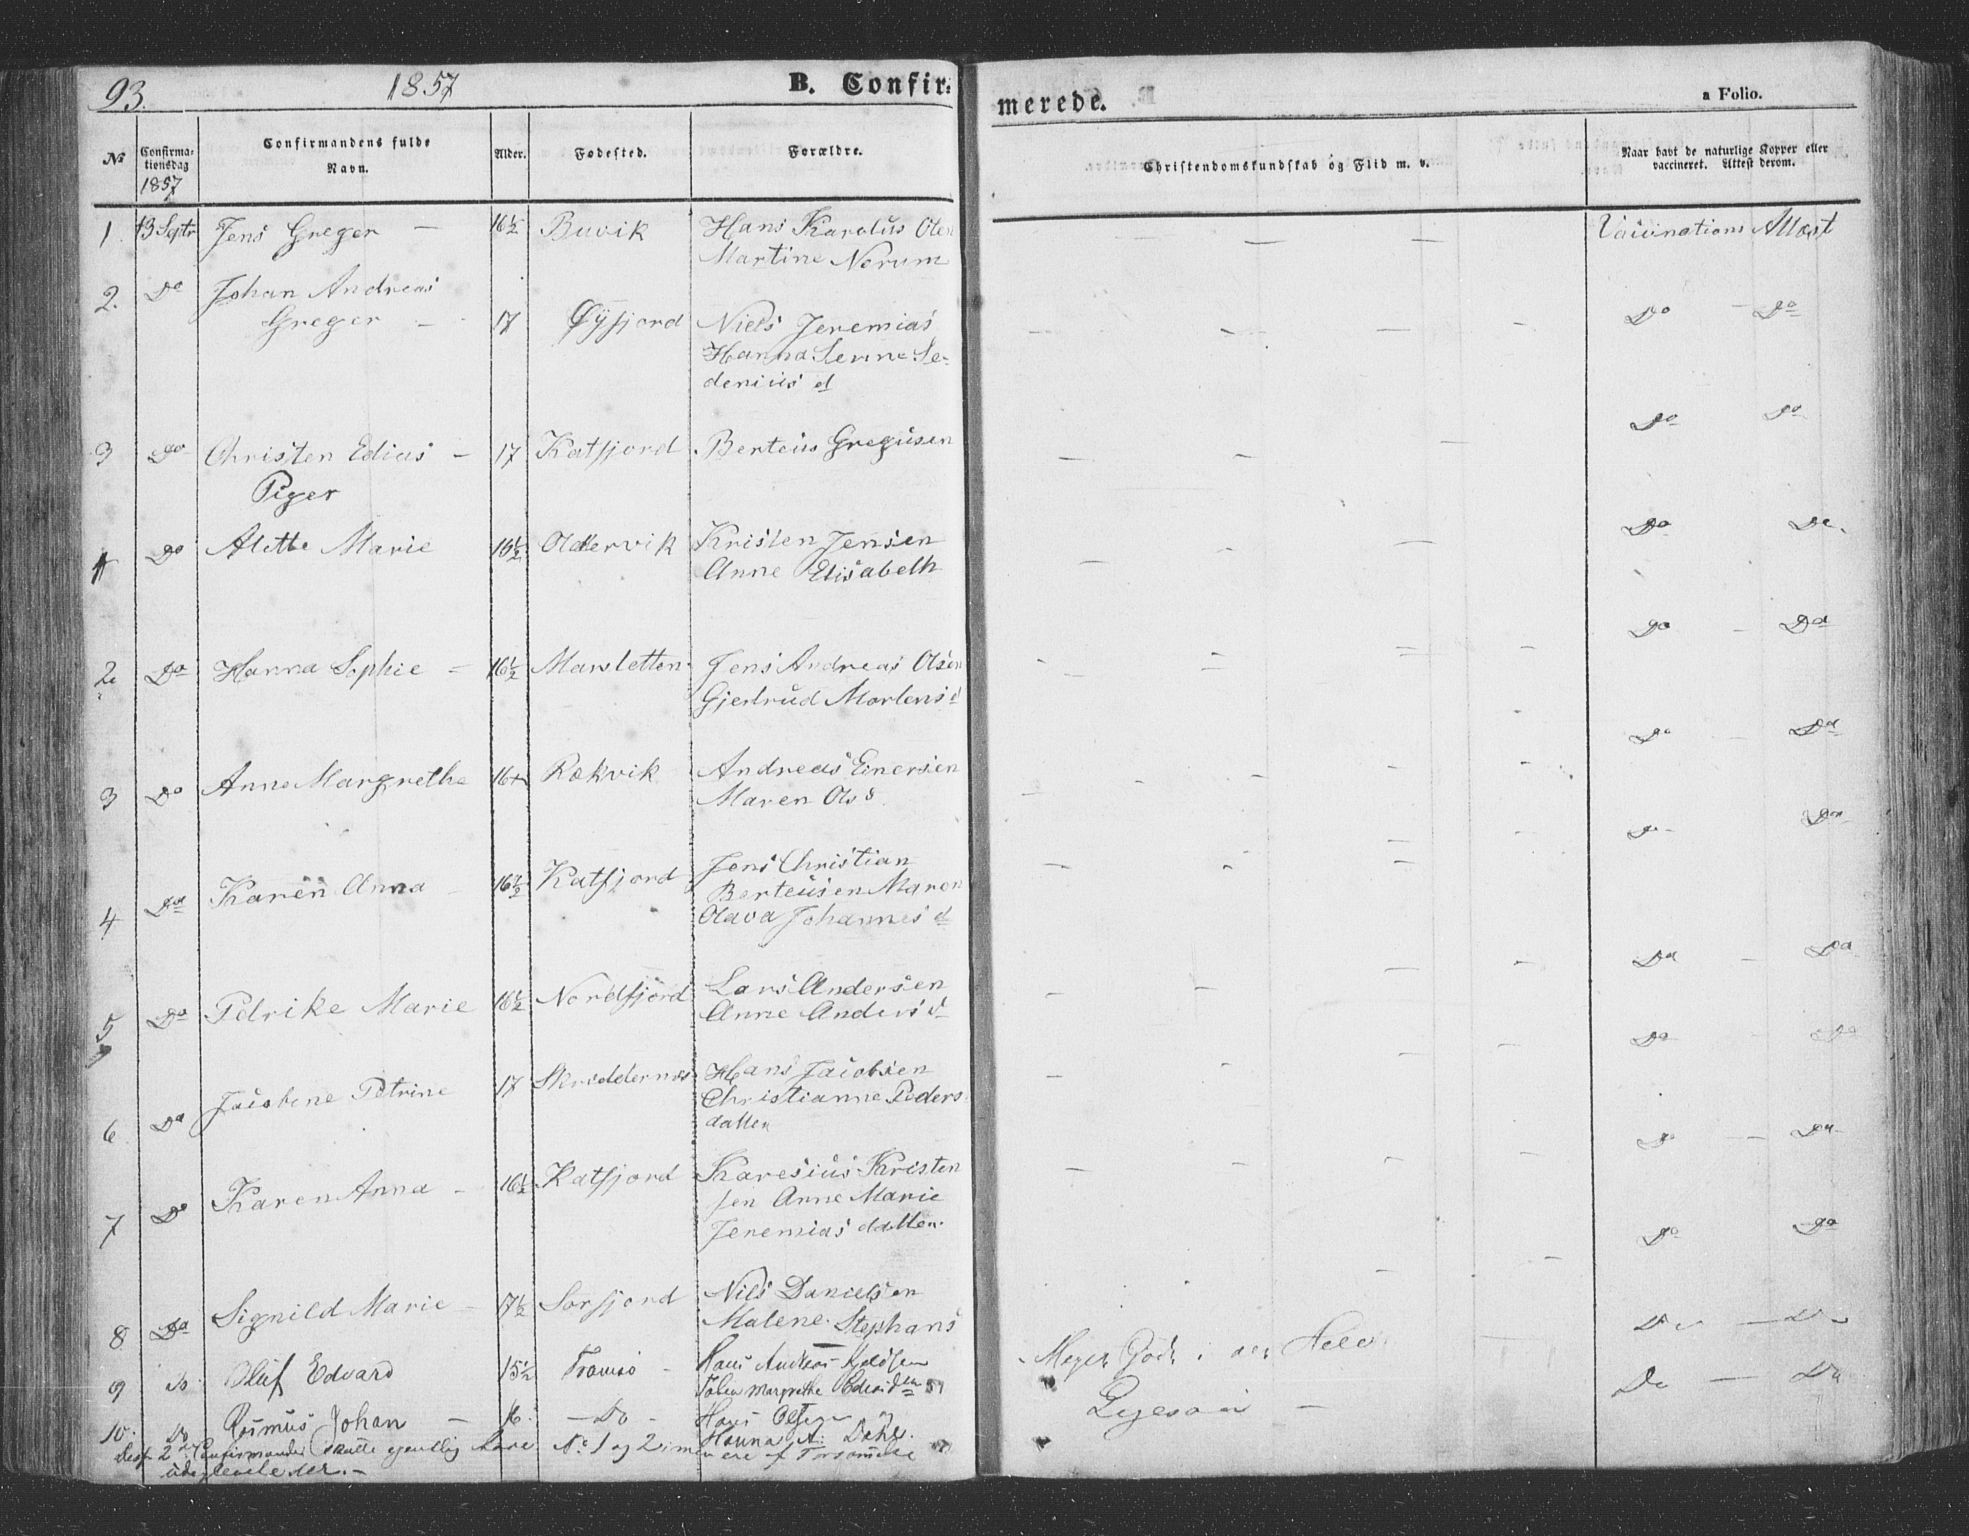 93.
1857
B. Confir:
merede.
a Folio.
No
Confirma-
tionsdag
1857
Confirmandens fulde
Navn.
Alder.
Fødested.
Forældre.
Christendomskundskab og Flid m. v.
Naar havt de naturlige Kopper eller
vaccineret. Attest derom.
1 13 Septr Jens Greger — 16½ Buvik Hans Karolus Olsen
Martine Norum
Vaccinations Attest
2. Do Johan Andreas
Greger — 17 Øyfjord Niels Jeremias
Hanna Lenne Se-
denius d
Do — Do
3 Do Christen Edias — 17 Katfjord Berteus Gregusen
Do Do
Piger
1 Do Alette Marie 16½ Oldervik Kristen Jensen
Anne Elisabeth
Do Do
2 Do Hanna Sophie — 16½ Marsletten Jens Andreas Olsen
Gjertrud Mortens d
Do — Do
3 Do Anne Margrethe 16 Rekvik Andreas Einersen
Maren Ols d
Do Do
4 Do Karen Anna 16½ Katfjord Jens Christian
Berteusen Maren
Olava Johannes d
Do Do
5 Do Petrike Marie 16½ Nordfjord Lars Andersen
Anne Anders d
Do — Do
6 Do Jacobine Petrine 17 Skreddernes Hans Jacobsen
Christianne Peders
datter
Do Do
7 Do Karen Anna — 16½ Katfjord Karesius Kristen
sen Anne Marie
Jeremias datter
Do — Do
8 Do Signild Marie — 17½ Sorfjord Nils Danielsen
Malene Stephans
Do Do
9 Do Oluf Edvard 15½ Tromsø Hans Andreas
Margrethe
Meget Godt i det Hele
Do — Do
10. Do Rasmus Johan — 16 — Do — Hans Olsen
Hanna A: Dahl
Ligesaa —
Do — Do
2 Confirmander skulle egentlig have No 1 og 2 men ere af Forsømmelse
udeglemte her. —